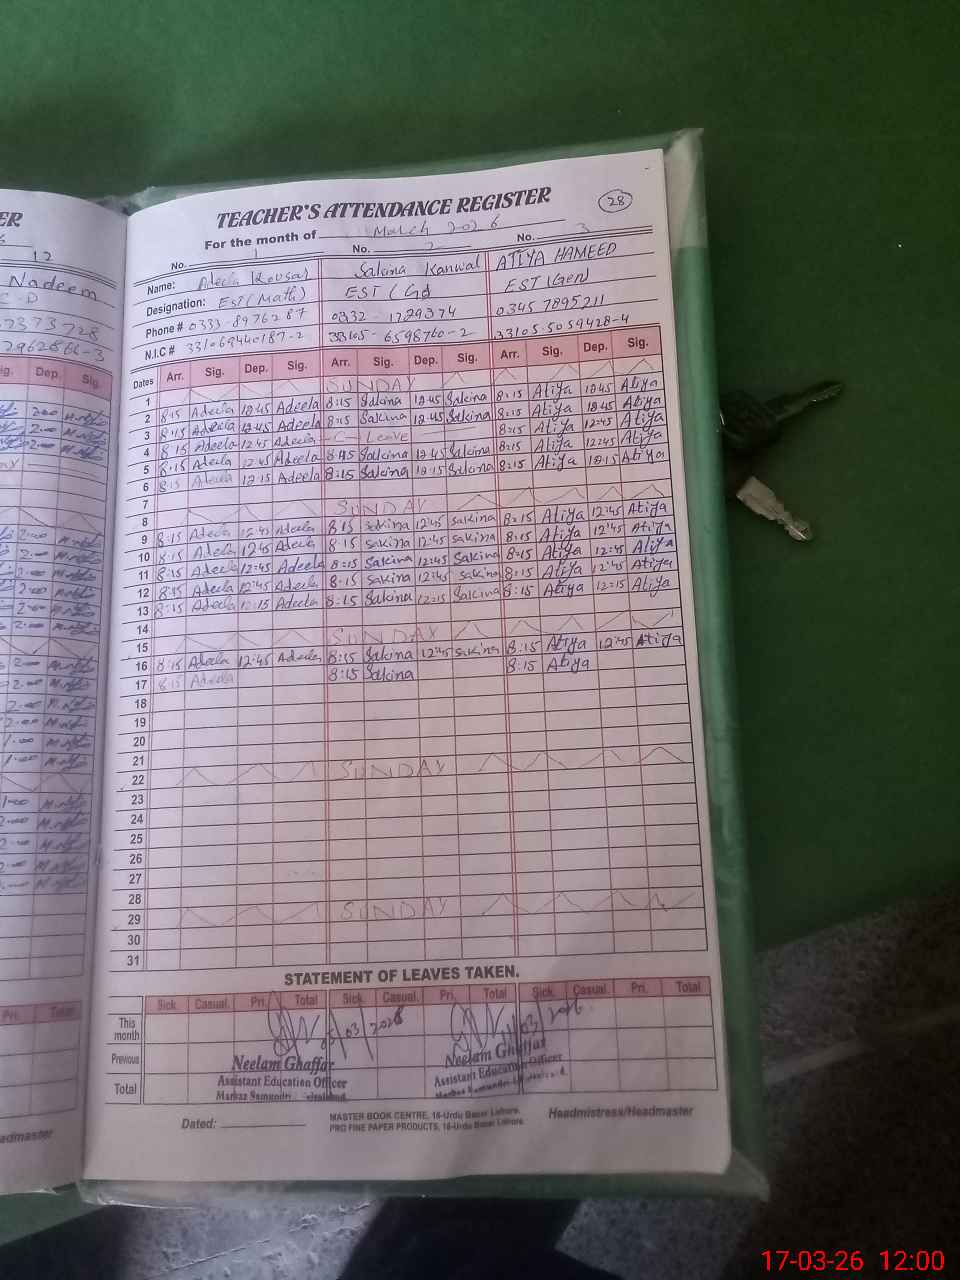 ER
12
Nadeem
C-D
7373728
2962866-3
TEACHER'S ATTENDANCE REGISTER
28
For the month of March 2026
No. 1 No. 2 No. 3
Name: Adeela Kousar Sakina Kanwal ATIYA HAMEED
Designation: EST (Math) EST (Gd EST (Gen)
Phone # 0333-8976287 0332-1729374 0345 7895211
N.I.C # 33105-6598760-2 33105-5059428-4
Dates Arr. Sig. Dep. Sig. Arr. Sig. Dep. Sig. Arr. Sig. Dep. Sig.
1 SUNDAY
2 8:15 Adeela 12:45 Adeela 8:15 Sakina 12:45 Sakina 8:15 Atiya 12:45 Atiya
3 8:15 Adeela 12:45 Adeela 8:15 Sakina 12:45 Sakina 8:15 Atiya 12:45 Atiya
4 8:15 Adeela 12:45 Adeela C Leave 8:15 Atiya 12:45 Atiya
5 8:15 Adeela 12:45 Adeela 8:15 Sakina 12:45 Sakina 8:15 Atiya 12:45 Atiya
6 8:15 Adeela 12:15 Adeela 8:15 Sakina 12:15 Sakina 8:15 Atiya 12:15 Atiya
7
8 SUNDAY
9 8:15 Adeela 12:45 Adeela 8:15 Sakina 12:45 Sakina 8:15 Atiya 12:45 Atiya
10 8:15 Adeela 12:45 Adeela 8:15 Sakina 12:45 Sakina 8:15 Atiya 12:45 Atiya
11 8:15 Adeela 12:45 Adeela 8:15 Sakina 12:45 Sakina 8:15 Atiya 12:45 Atiya
12 8:15 Adeela 12:45 Adeela 8:15 Sakina 12:45 Sakina 8:15 Atiya 12:45 Atiya
13 8:15 Adeela 12:15 Adeela 8:15 Sakina 12:15 Sakina 8:15 Atiya 12:15 Atiya
14
15 SUNDAY
16 8:15 Adeela 12:45 Adeela 8:15 Sakina 12:45 Sakina 8:15 Atiya 12:45 Atiya
17 8:15 Adeela 8:15 Sakina 8:15 Atiya
18
19
20
21
22 SUNDAY
23
24
25
26
27
28
29 SUNDAY
30
31
STATEMENT OF LEAVES TAKEN.
Sick. Casual. Pri. Total Sick. Casual. Pri. Total Sick. Casual. Pri. Total
This month
Previous
Total
Neelam Ghaffar Neelam Ghaffar
Assistant Education Officer Assistant Education Officer
Markaz Samundri
Dated:
MASTER BOOK CENTRE, 16-Urdu Bazar Lahore.
PRO FINE PAPER PRODUCTS, 16-Urdu Bazar Lahore.
Headmistress/Headmaster
17-03-26 12:00